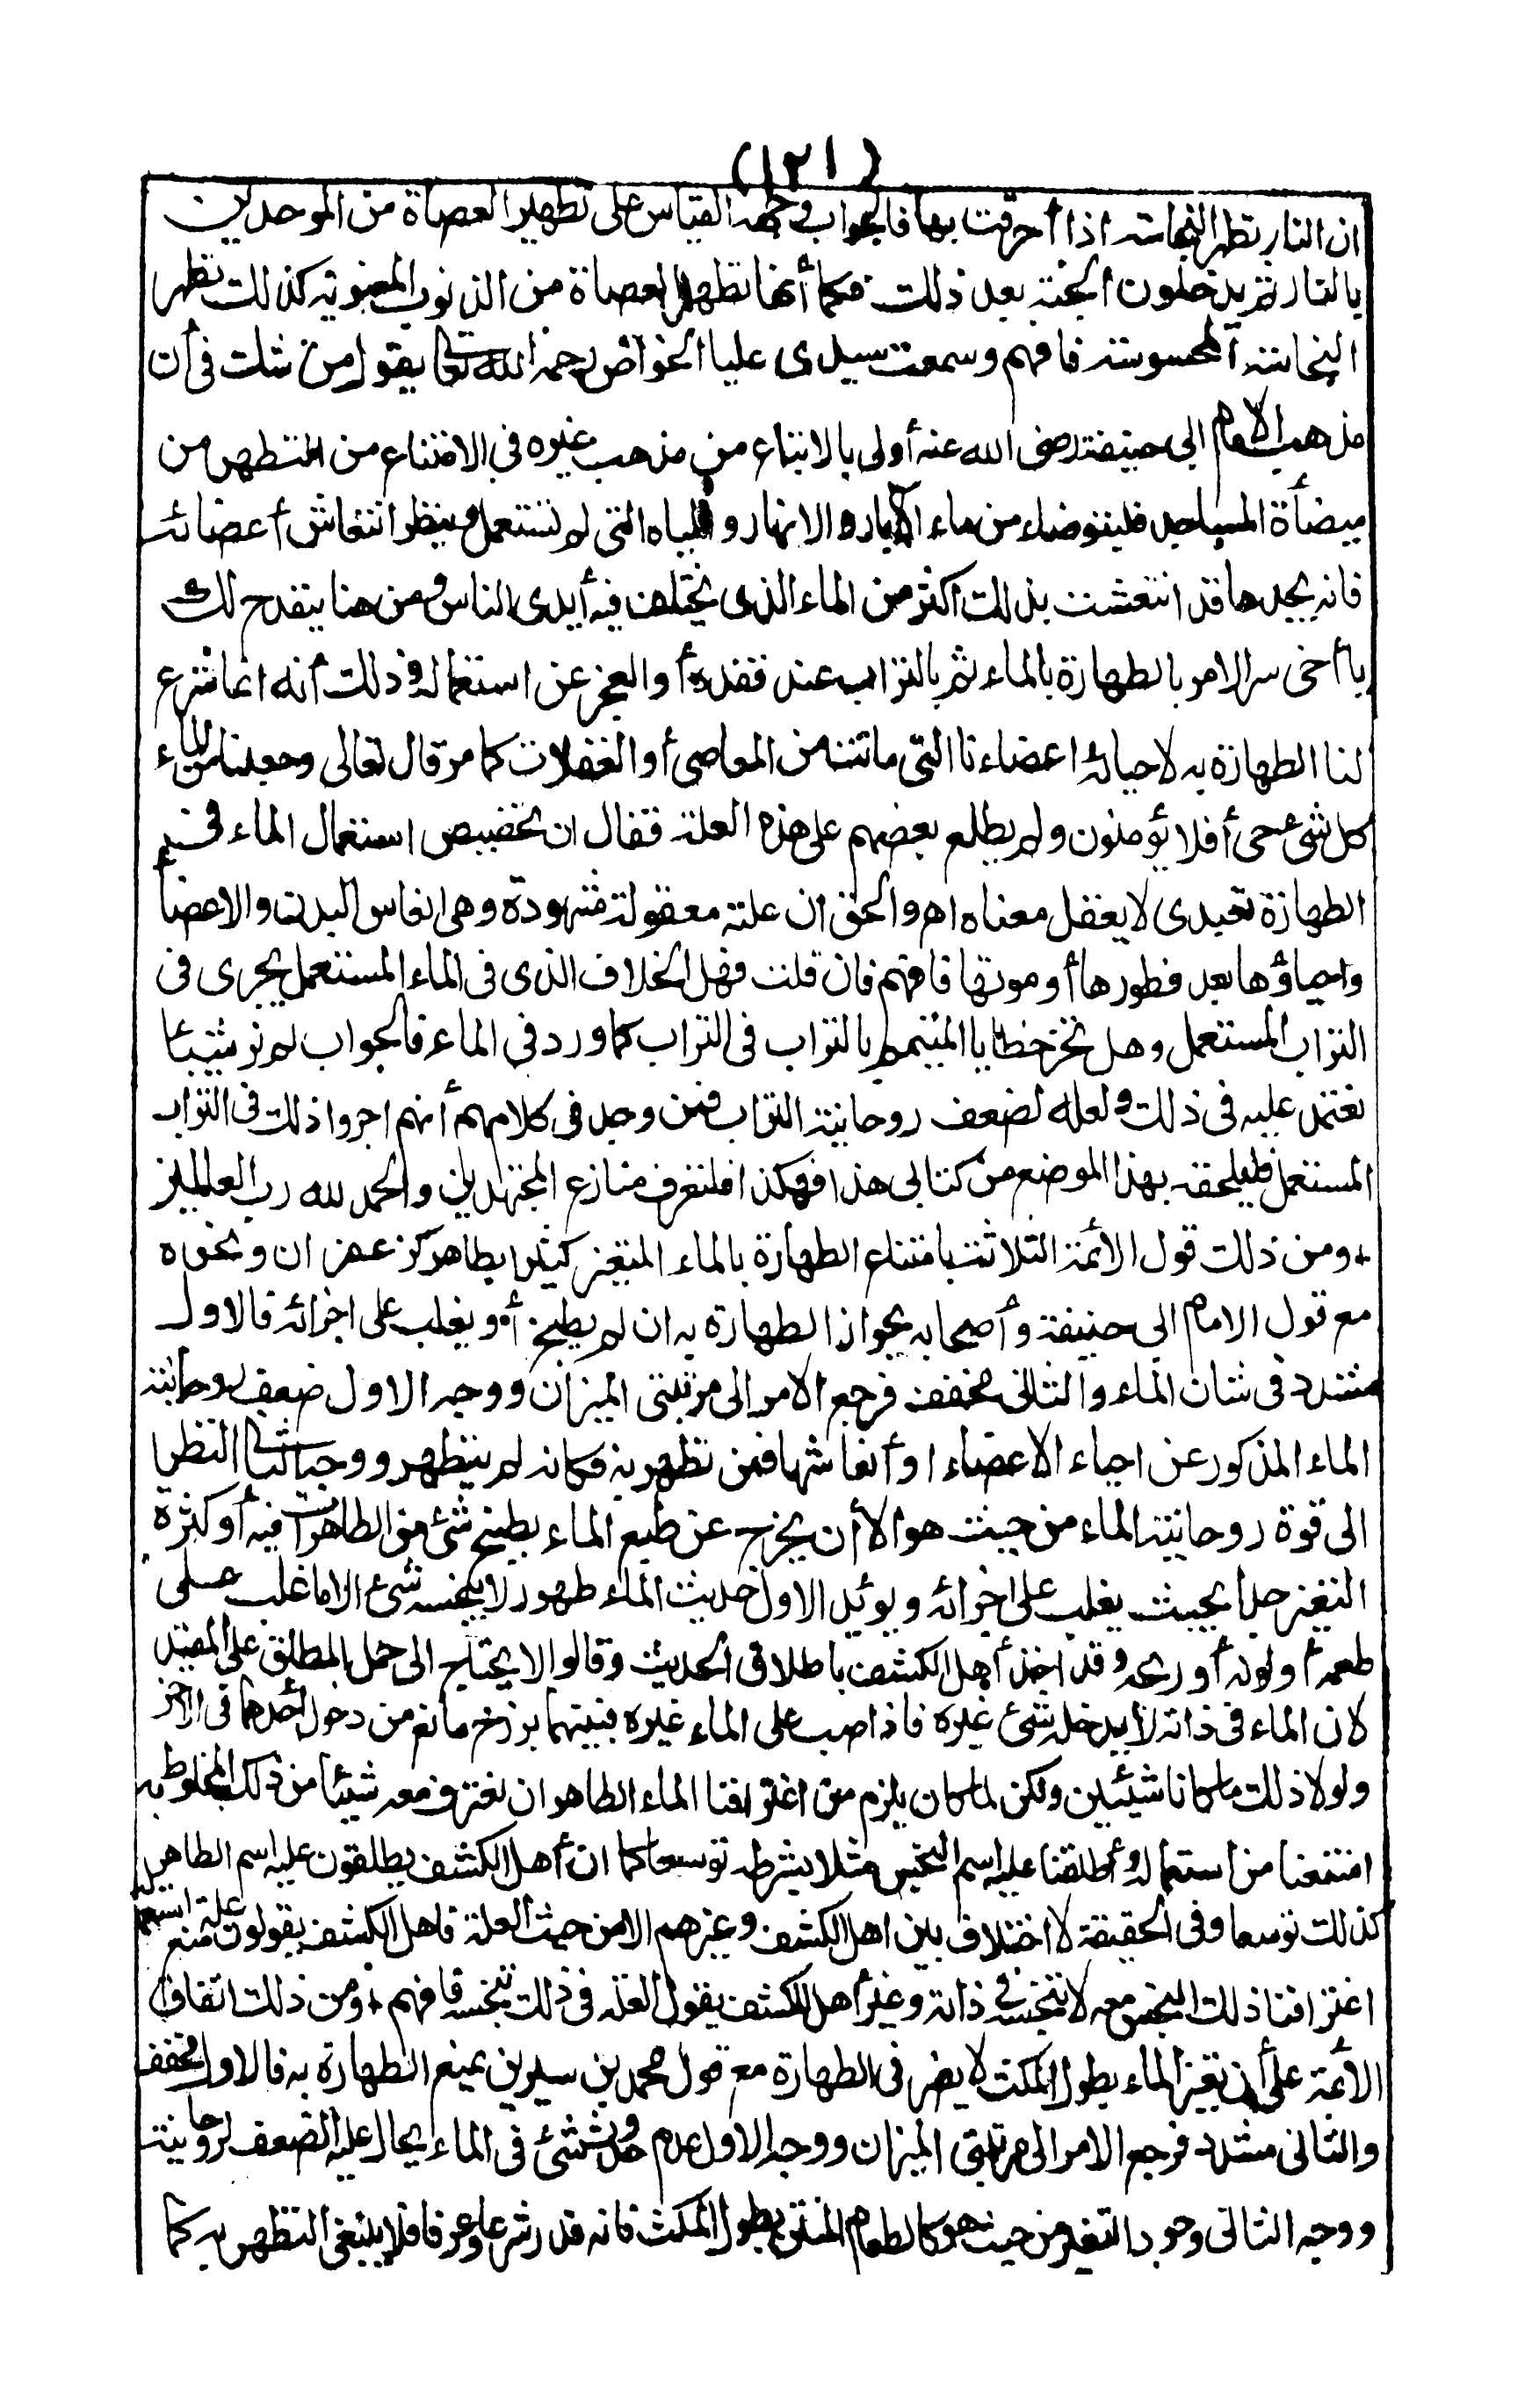 (١٢١)
ان النار تطهر النجاسة اذا أحرقت بها فالجواب وجهه القياس على تطهير العصاة من الموحدين
بالنار ثم يدخلون الجنة بعد ذلك فكما أنها تطهر العصاة من الذنوب المعنوية كذلك تطهر
النجاسة المحسوسة فافهم وسمعت سيدى عليا الخواص رحمه الله تعالى يقول من شك فى أن
مذهب الامام ابى حنيفة رضى الله عنه أولى بالاتباع من مذهب غيره فى الامتناع من التطهر من
ميضأة المساجد فليتوضاء من ماء الآبار والانهار والمياه التى لم تستعمل وينظر انتعاش أعضائه
فانه يجدها قد انتعشت بذلك اكثر من الماء الذى يختلف فيه أيدى الناس ومن هنا ينقدح لك
يا أخى سر الامر بالطهارة بالماء ثم بالتراب عند فقده أو العجز عن استعماله وذلك أنه انما شرع
لنا الطهارة به لاحياء اعضاءنا التى ماتت من المعاصى أو الغفلات كما مر قال تعالى وجعلنا من الماء
كل شىء حى أفلا يؤمنون ولم يطلع بعضهم على هذه العلة فقال ان تخصيص استعمال الماء فى
الطهارة تعبدى لا يعقل معناه اهـ والحق ان علته معقولة مشهودة وهى انعاش البدن والاعضأ
واحياؤها بعد فطورها أو موتها فافهم فان قلت فهل الخلاف الذى فى الماء المستعمل يجرى فى
التراب المستعمل وهل تخر خطايا المتيمم بالتراب فى التراب كما ورد فى الماء فالجواب لم نر شيئا
نعتمد عليه فى ذلك ولعله لضعف روحانية التراب فمن وجد فى كلامهم أنهم اجروا ذلك فى التراب
المستعمل فليلحقه بهذا الموضع من كتابى هذا فهكذا فلتعرف منازع المجتهدين والحمد لله رب العالمين
+ ومن ذلك قول الأئمة الثلاثة بامتناع الطهارة بالماء المتغير كثيرا بطاهر كزعفران ونحوه
مع قول الامام ابى حنيفة وأصحابه بجواز الطهارة به ان لم يطبخ أو يغلب على اجزائه فالاول
مشدد فى شان الماء والثانى مخفف فرجع الامر الى مرتبتى الميزان ووجه الاول ضعف روحانية
الماء المذكور عن احياء الاعضاء او أنعاشها فمن تطهر به فكانه لم يتطهر ووجه الثانى النظر
الى قوة روحانية الماء من حيث هو الا أن يخرج عن طبع الماء بطبخ شئ من الطاهرات فيه أو كثرة
التغير جدا بحيث يغلب على اجزائه ويؤيد الاول حديث الماء طهور لا ينجسه شىء الا ما غلب على
طعمه أو لونه أو ريحه وقد اخذ أهل الكشف باطلاق الحديث وقالوا لا يحتاج الى حمل المطلق على المقيد
لان الماء فى ذاته لا يدخله شئ غيره فاذا صب على الماء غيره فبينهما برزخ مانع من دخول أحدهما فى الآخر
ولولا ذلك ما كانا شيئين ولكن لما كان يلزم من اغترافنا الماء الطاهر ان نغترف معه شيئا من ذلك المخلوط به
امتنعنا من استعماله وأطلقنا عليه اسم النجس مثلا بشرطه توسعا كما ان أهل الكشف يطلقون عليه اسم الطاهر
كذلك توسعا وفى الحقيقة لا اختلاف بين اهل الكشف وغيرهم الا من حيث العلة فاهل الكشف يقولون علة منع
اغترافنا ذلك النجس معه لا تنجسه فى ذاته وغير أهل الكشف يقول العلة فى ذلك تنجسه فافهم + ومن ذلك اتفاق
الأئمة على أن تغير الماء بطول المكث لا يضر فى الطهارة مع قول محمد بن سيرين بمنع الطهارة به فالاول مخفف
والثانى مشدد فرجع الامر الى مرتبتى الميزان ووجه الاول عدم حدوث شئ فى الماء يحال عليه الضعف لروحانيته
ووجه الثانى وجود التغير من حيث هو كالطعام المنتن بطول المكث فانه قذر شرعا وعرفا فلا ينبغى التطهر به كما